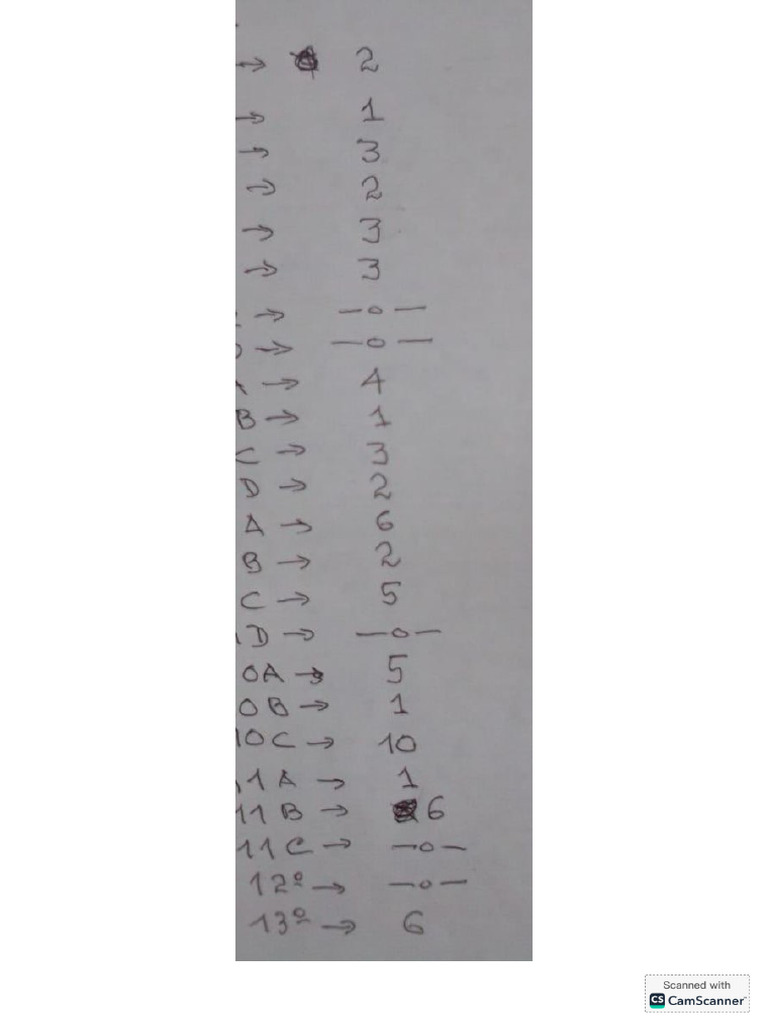 → 2
→ 1
→ 3
→ 2
→ 3
→ 3
→ —o—
→ —o—
→ 4
B → 1
C → 3
D → 2
A → 6
B → 2
C → 5
D → —o—
0A → 5
0B → 1
10C → 10
11A → 1
11B → 6
11C → —o—
12º → —o—
13º → 6
Scanned with
CS CamScanner